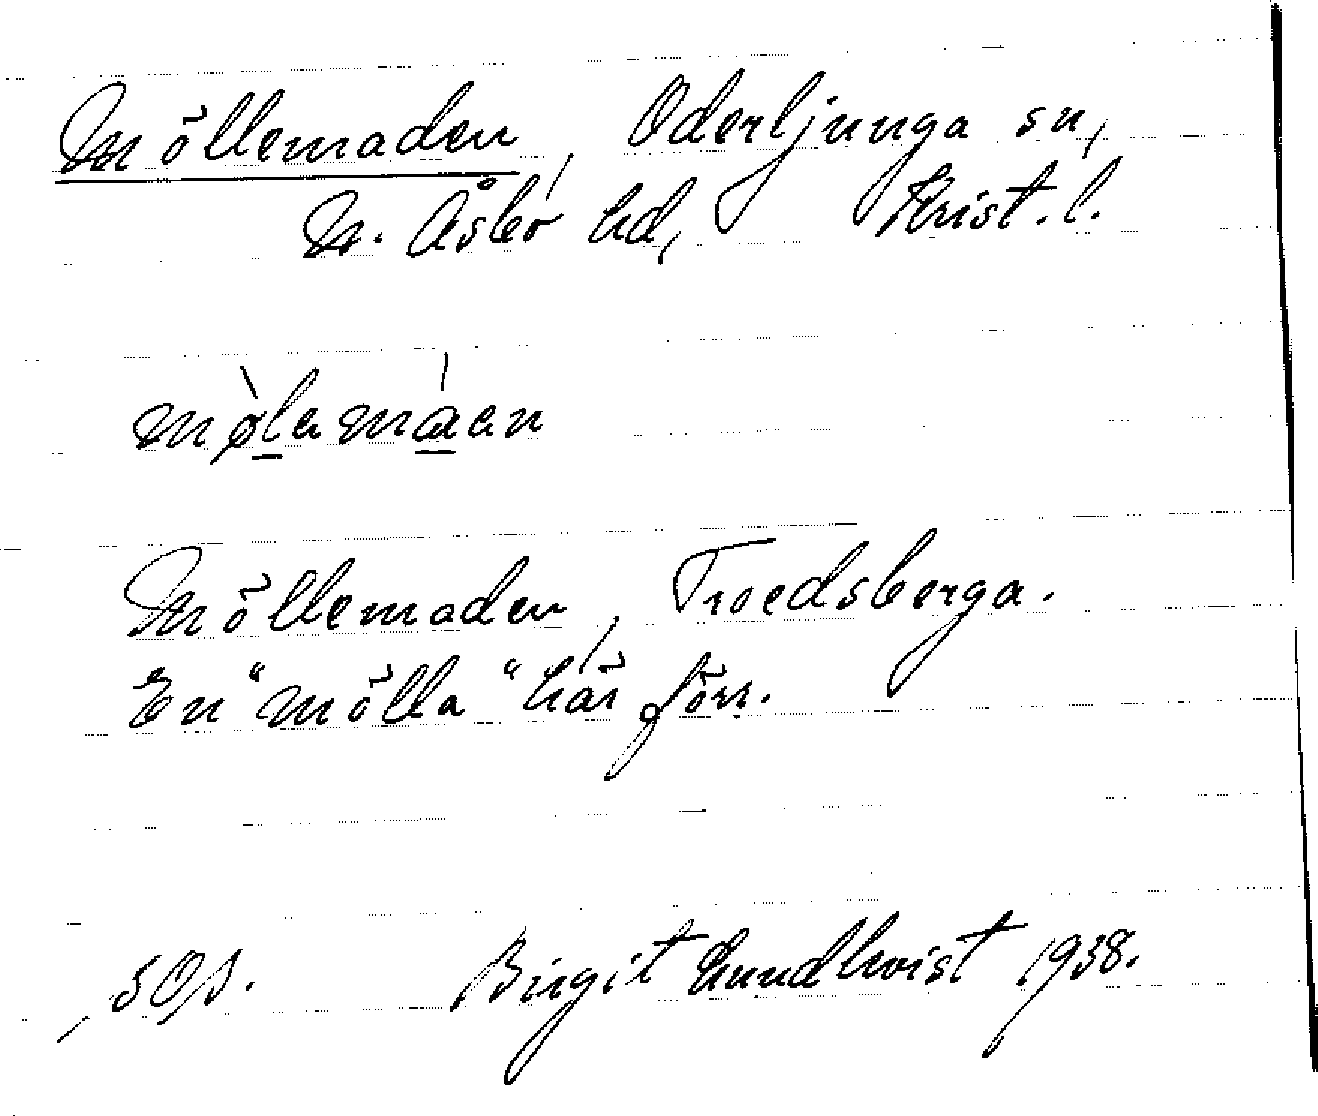 Möllemaden, Oderljunga sn,
N. Åsbo hd, Krist. l.
mø̀lamáen
Möllemaden, Troedsberga.
En "mölla" här förr.
SOS. Birgit Lundkvist 1938.